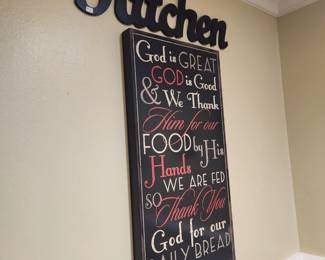 Kitchen
God is GREAT
GOD is Good
& We Thank
Him for our
FOOD by His
Hands
WE ARE FED
SO Thank You
God for our
DAILY BREAD